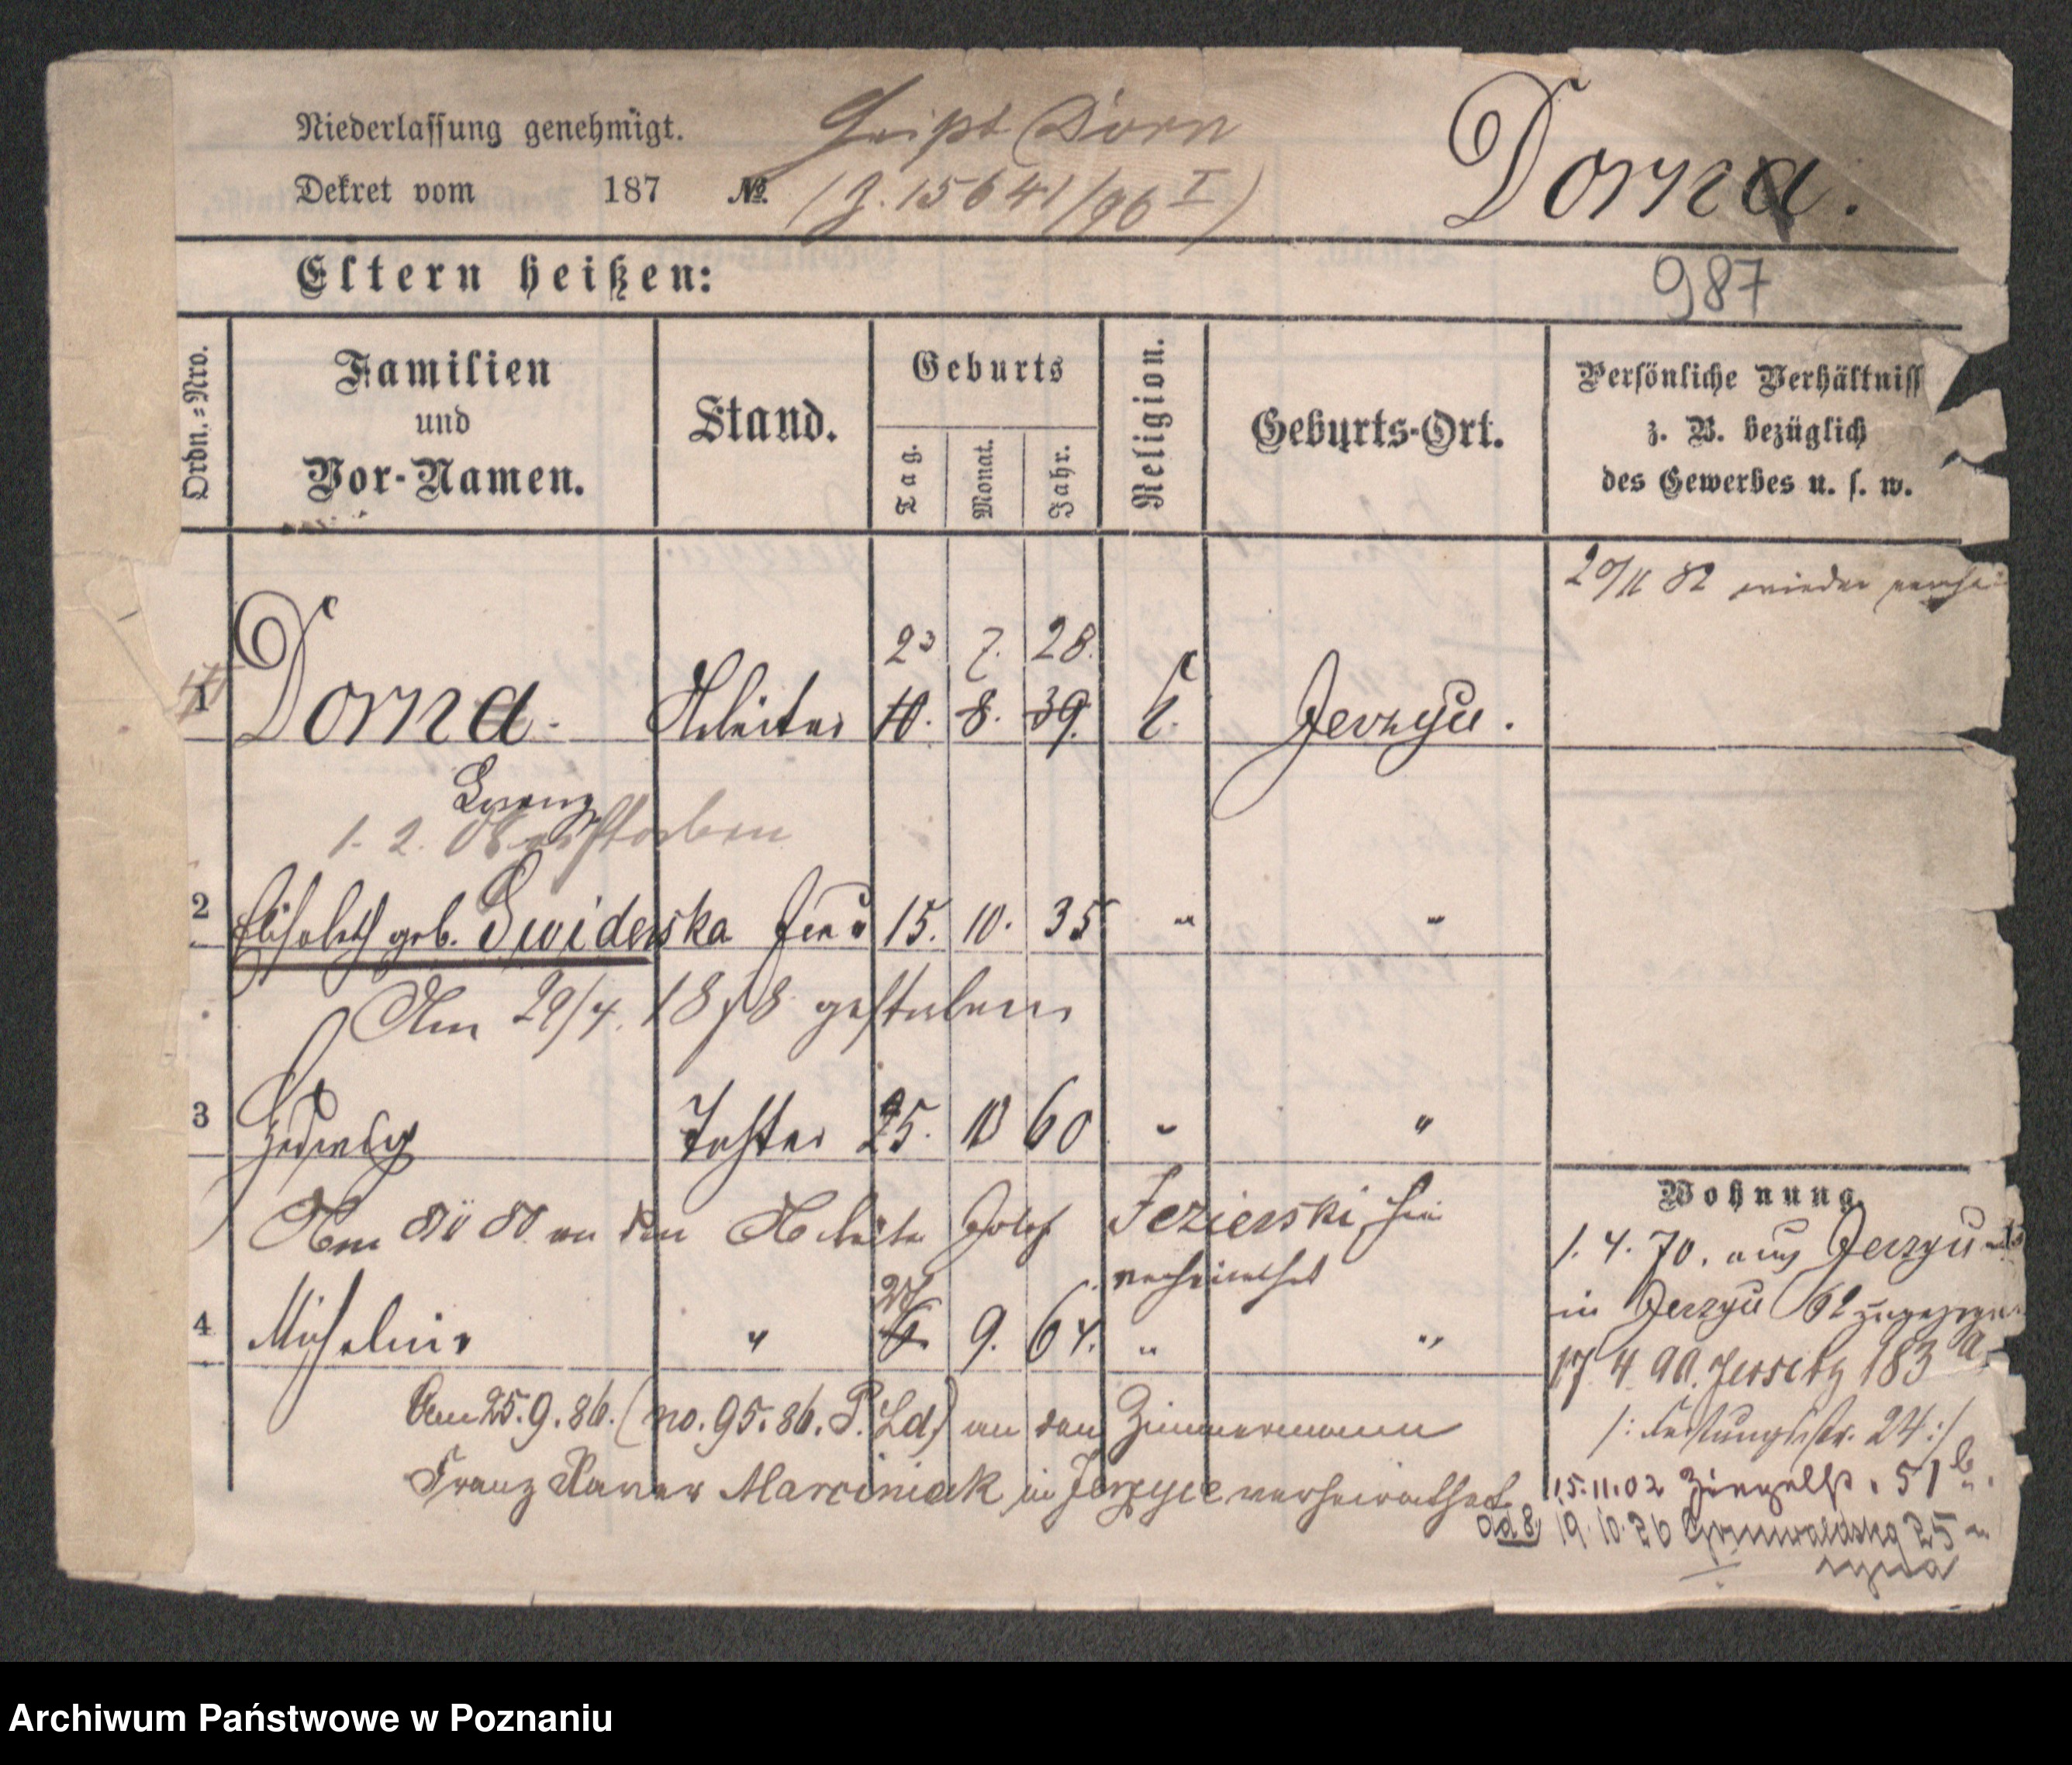 Niederlassung genehmigt. heißt Dorn
Dekret vom 187 № (J. 15641/96 I)
Dorna.
Eltern heißen:
987
Ordn.=Nro.
Familien
und
Vor-Namen.
Stand.
Geburts
Tag.
Monat.
Jahr.
Religion.
Geburts-Ort.
Persönliche Verhältniss
z. B. bezüglich
des Gewerbes u. s. w.
20/11 82 wieder
23 7. 28.
1 Dorna. Arbeiter 10. 8. 39. k. Jerzyce.
Lorenz
1. 2. 08 verstorben
2 Elisabeth geb. Swiderska Frau 15. 10. 35 " "
Am 29/4. 1878 gestorben
3 Hedwig Tochter 25. 10 60 " "
Am 80 an den Arbeiter Josef Jezierski hier
verheirathet
4 Michalina " 9. 64. " "
Am 25.9.86. (no. 95.86. P. Ld) an den Zimmermann
Franz Xaver Marciniak in Jerzyce verheirathet.
Wohnung.
1. 4. 70. aus Jerzyce
in Jerzyce 62 zugezogen
17 4 90. Jersitz 183 a
/: Festungsstr. 24 :/
15.11.02 Ziegelstr. 51 b.
19.10.26 Grunwaldska 25